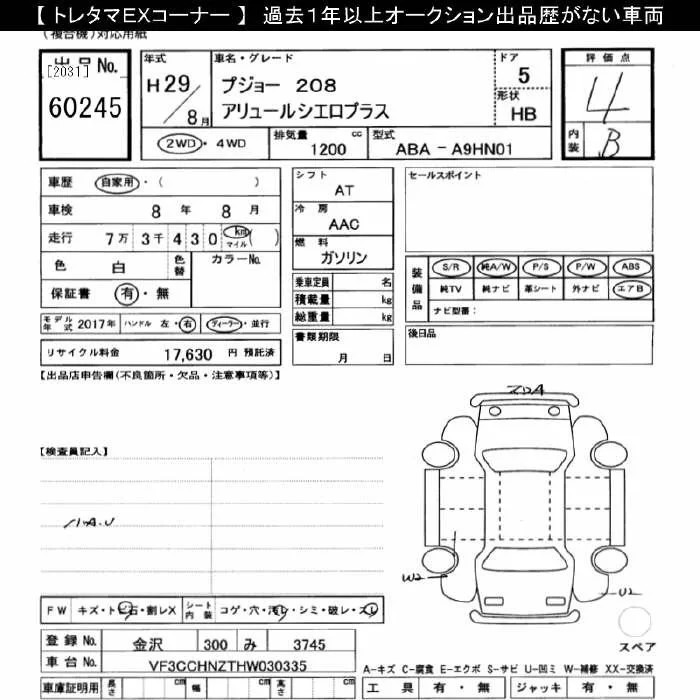 【 トレタマEXコーナー 】 過去1年以上オークション出品歴がない車両
(複合機)対応用紙
出品 No.
[2031]
60245
年式
H 29/8月
車名・グレード
プジョー 208
アリュールシエロプラス
ドア
5
形状
HB
評価点
4
内装
B
2WD・4WD
排気量
1200 cc
型式
ABA - A9HN01
車歴 自家用・( )
車検 8 年 8 月
走行 7万 3千 4 3 0 km マイル ( )
色 白 色替 カラーNo.
保証書 有・無
モデル年式 2017年 ハンドル 左・右 ディーラー・並行
リサイクル料金 17,630 円 預託済
シフト
AT
冷房
AAC
燃料
ガソリン
乗車定員 名
積載量 kg
総重量 kg
書類期限
月 日
セールスポイント
装備品
S/R 純A/W P/S P/W ABS
純TV 純ナビ 革シート 外ナビ エアB
ナビ型番:
後日品
【出品店申告欄(不良箇所・欠品・注意事項等)】
【検査員記入】
ハA.U
FW キズ・トビ石・割レX シート内装 コゲ・穴・汚レ・シミ・破レ・スレ
登録 No. 金沢 300 み 3745
車台 No. VF3CCHNZTHW030335
車庫証明用 長さ cm 幅 cm 高さ cm
W2
U2
スペア
A-キズ C-腐食 E-エクボ S-サビ U-凹ミ W-補修 XX-交換済
工具 有・無 ジャッキ 有・無